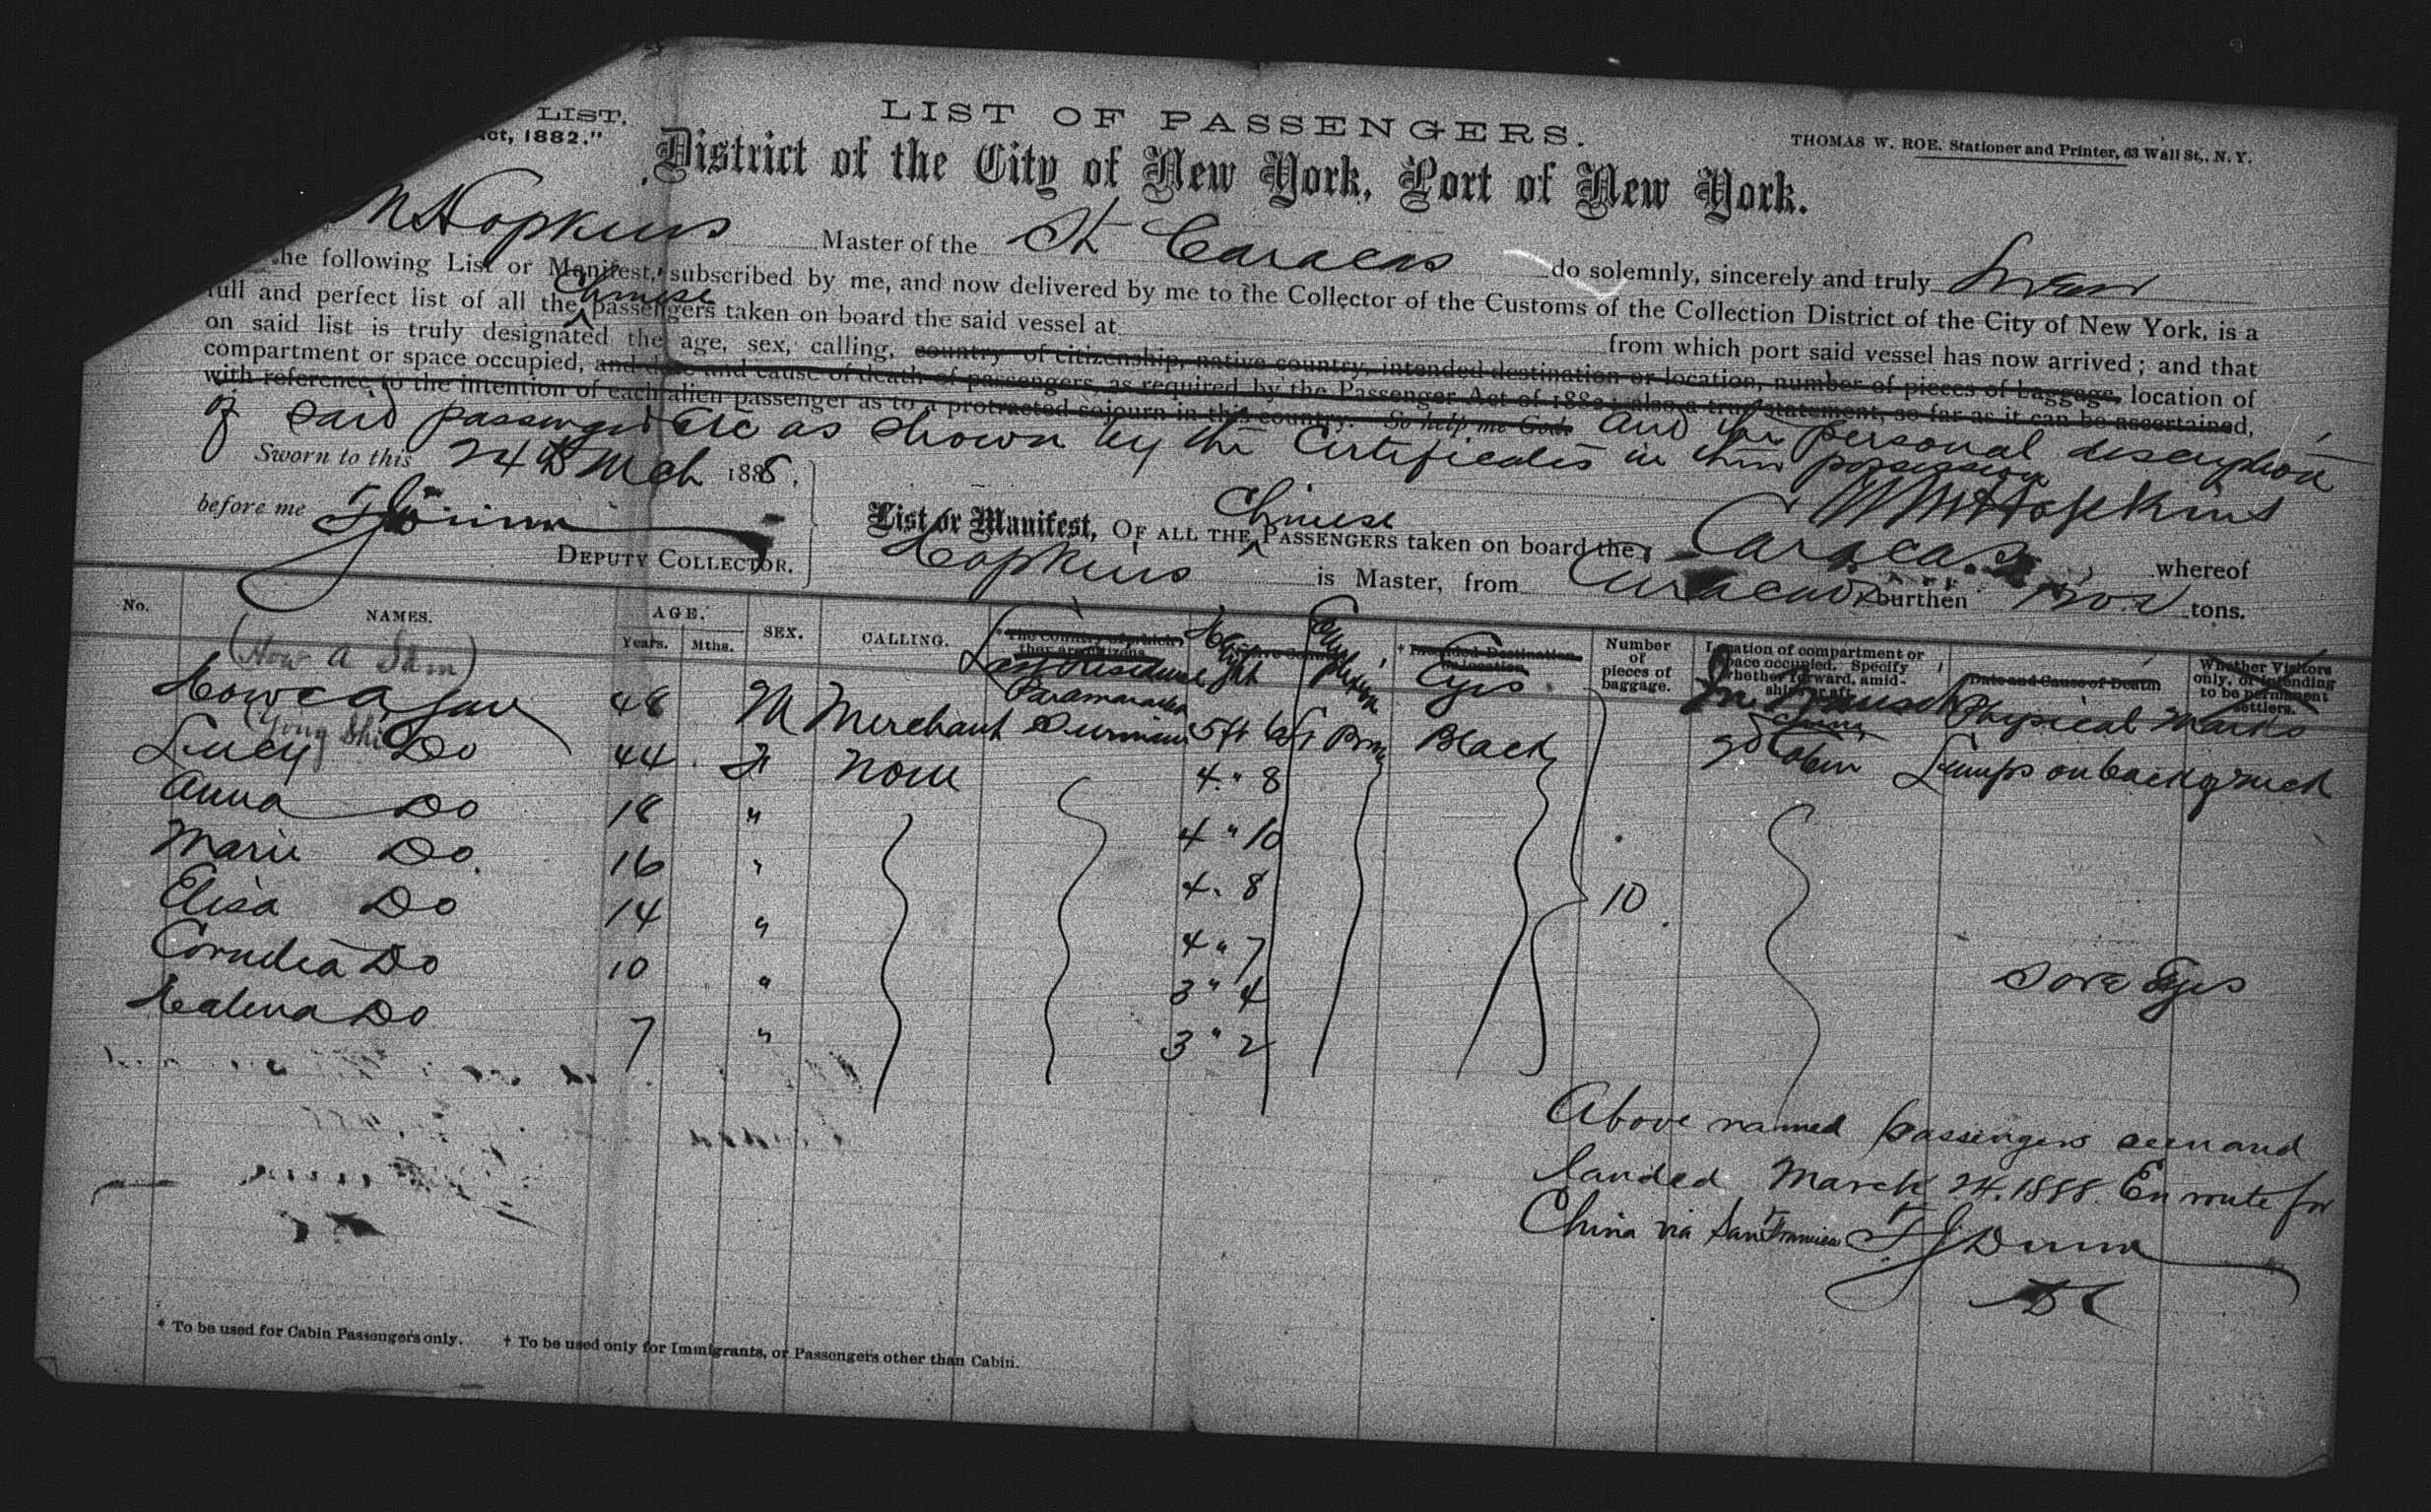 LIST.
LIST OF PASSENGERS.
THOMAS W. ROE, Stationer and Printer, 63 Wall St., N. Y.
Act, 1882."
District of the City of New York, Port of New York.
M Hopkins Master of the St Caracas do solemnly, sincerely and truly Swear
he following List or Manifest, subscribed by me, and now delivered by me to the Collector of the Customs of the Collection District of the City of New York, is a
full and perfect list of all the Chinese passengers taken on board the said vessel at from which port said vessel has now arrived; and that
on said list is truly designated the age, sex, calling, country of citizenship, native country, intended destination or location, number of pieces of baggage, location of
compartment or space occupied, and date and cause of death of passengers, as required by the Passenger Act of 1882; also a true statement, so far as it can be ascertained,
with reference to the intention of each alien passenger as to a protracted sojourn in this country. So help me God. and the personal description
of said passengers etc as shown by the Certificates in their possession
Sworn to this 24th Mch 1888,
W M Hopkins
before me F J Dunn
DEPUTY COLLECTOR.
List or Manifest, OF ALL THE Chinese PASSENGERS taken on board the Caracas whereof
Hopkins is Master, from Curacao burthen tons.
No.
NAMES.
AGE.
Years. Mths.
SEX.
CALLING.
* The country of which they are citizens.
Last Residence
Native Country
Height
Complexion
† Intended Destination or Location
Eyes
Number of pieces of baggage.
Location of compartment or space occupied. Specify whether forward, amidships or aft.
Date and Cause of Death
Physical Marks
Whether Visitors only, or intending to be permanent settlers.
(How a Sam)
48 M Merchant Paramaribo Surinam 5 ft Brn Black Cabin Lumps on back of neck
Lucy Do 44 F None 4 " 8
Anna Do 18 " 4 " 10
Marie Do. 16 " 4 " 8
Elisa Do 14 " 4 " 7
10
Cornelia Do 10 " 3 " 4 Sore Eyes
Do 7 " 3 " 2
Above named passengers seen and
landed March 24. 1888. En route for
China via San Francisco F J Dunn
DC
* To be used for Cabin Passengers only. † To be used only for Immigrants, or Passengers other than Cabin.